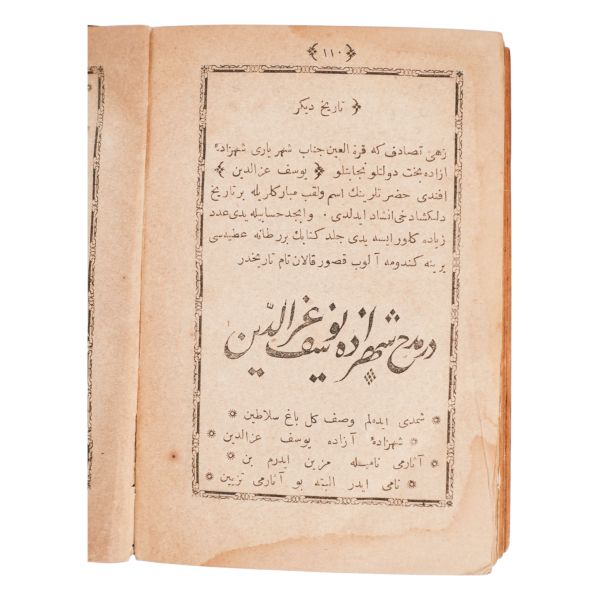 ﴿ ١١٠ ﴾
﴿ تاریخ دیکر ﴾
زهی تصادف که قرة العین جناب شهریاری شهزادهٔ
ازاده بخت دولتلو نجابتلو ﴿ یوسف عزالدین ﴾
افندی حضرتلرینك اسم ولقب مبارکلریله بر تاریخ
دلکشاد خی انشاد ایدلدی . وابجد حسابیله یدی عدد
زیاده کلور ایسه یدی جلد کتابك بر دانه عطیه سی
یرینه کندومه آلوب قصور قالان تام تاریخدر
در مدح شهزاده یوسف عزالدین
شمدی ایده لم وصف کل باغ سلاطین
شهزادهٔ آزاده یوسف عزالدین
آثارمی نامیله مزین ایدرم بن
نامی ایدر البته بو آثارمی تزیین